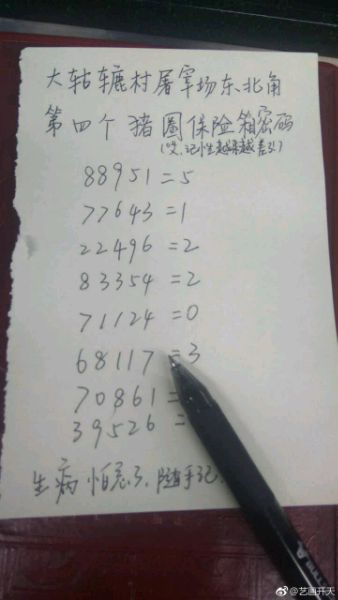 大轱辘村屠宰场东北角
第四个猪圈保险箱密码
(哎,记性越来越差!)
88951=5
77643=1
22496=2
83354=2
71124=0
68117=3
70861=
39526=
生病怕忘了,随手记
@艺画开天